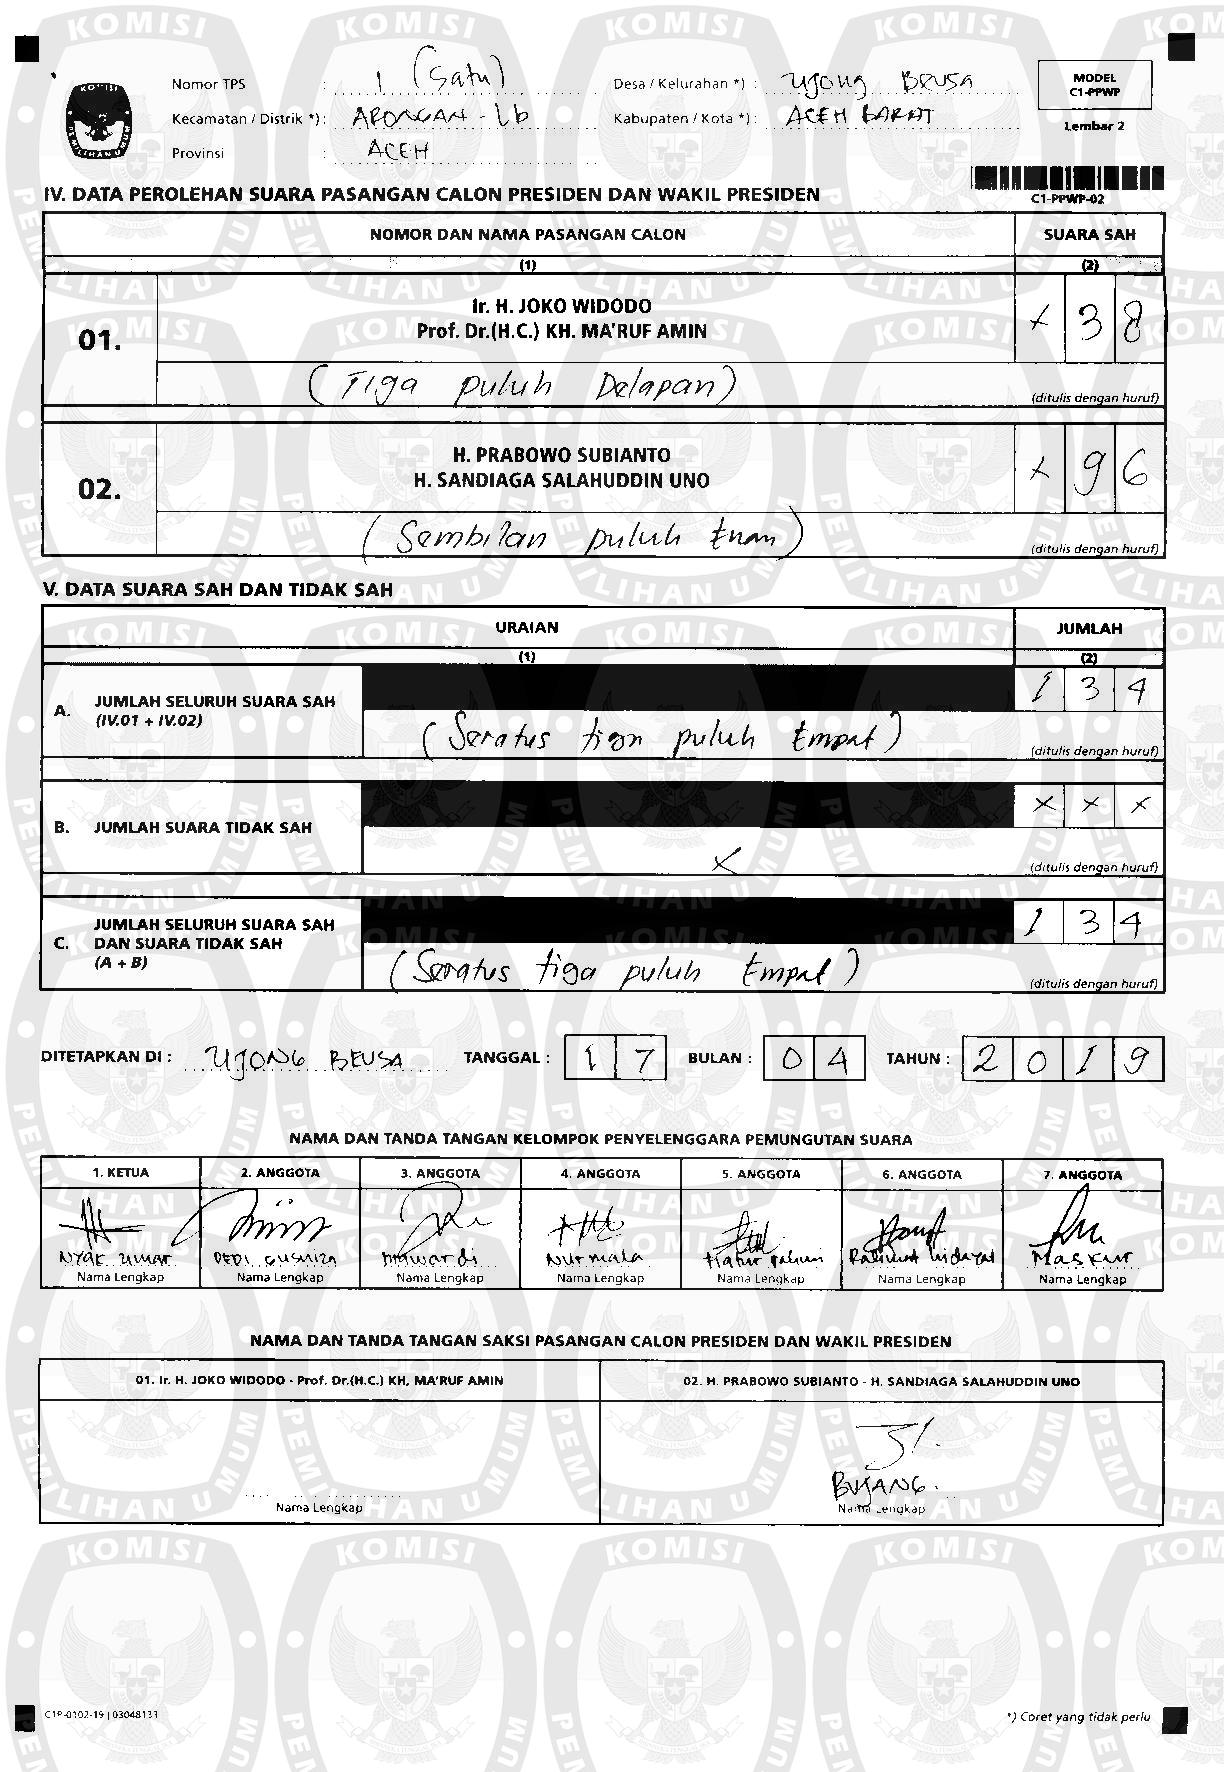 Nomor TPS : 1 (Satu)
Desa / Kelurahan *) : Ujong Beusa
MODEL
C1-PPWP
Kecamatan / Distrik *) : ARONGAN - Lb
Kabupaten / Kota *) : ACEH BARAT
Lembar 2
Provinsi : ACEH
C1-PPWP-02
IV. DATA PEROLEHAN SUARA PASANGAN CALON PRESIDEN DAN WAKIL PRESIDEN
NOMOR DAN NAMA PASANGAN CALON SUARA SAH
(1) (2)
01. Ir. H. JOKO WIDODO
Prof. Dr.(H.C.) KH. MA'RUF AMIN
x 3 8
(Tiga puluh Delapan)
(ditulis dengan huruf)
02. H. PRABOWO SUBIANTO
H. SANDIAGA SALAHUDDIN UNO
x 9 6
(Sembilan puluh Enam)
(ditulis dengan huruf)
V. DATA SUARA SAH DAN TIDAK SAH
URAIAN JUMLAH
(1) (2)
A. JUMLAH SELURUH SUARA SAH
(IV.01 + IV.02)
1 3 4
(Seratus tiga puluh Empat)
(ditulis dengan huruf)
B. JUMLAH SUARA TIDAK SAH
x x x
x
(ditulis dengan huruf)
C. JUMLAH SELURUH SUARA SAH
DAN SUARA TIDAK SAH
(A + B)
1 3 4
(Seratus tiga puluh Empat)
(ditulis dengan huruf)
DITETAPKAN DI : UJONG BEUSA TANGGAL : 1 7 BULAN : 0 4 TAHUN : 2 0 1 9
NAMA DAN TANDA TANGAN KELOMPOK PENYELENGGARA PEMUNGUTAN SUARA
1. KETUA 2. ANGGOTA 3. ANGGOTA 4. ANGGOTA 5. ANGGOTA 6. ANGGOTA 7. ANGGOTA
NYAK UMAR DEDI Mawardi Nurmala Rahmat Hidayat Maskur
Nama Lengkap Nama Lengkap Nama Lengkap Nama Lengkap Nama Lengkap Nama Lengkap Nama Lengkap
NAMA DAN TANDA TANGAN SAKSI PASANGAN CALON PRESIDEN DAN WAKIL PRESIDEN
01. Ir. H. JOKO WIDODO - Prof. Dr.(H.C.) KH. MA'RUF AMIN
02. H. PRABOWO SUBIANTO - H. SANDIAGA SALAHUDDIN UNO
BUJANG.
Nama Lengkap Nama Lengkap
C1P-0102-19 | 03048133
*) Coret yang tidak perlu